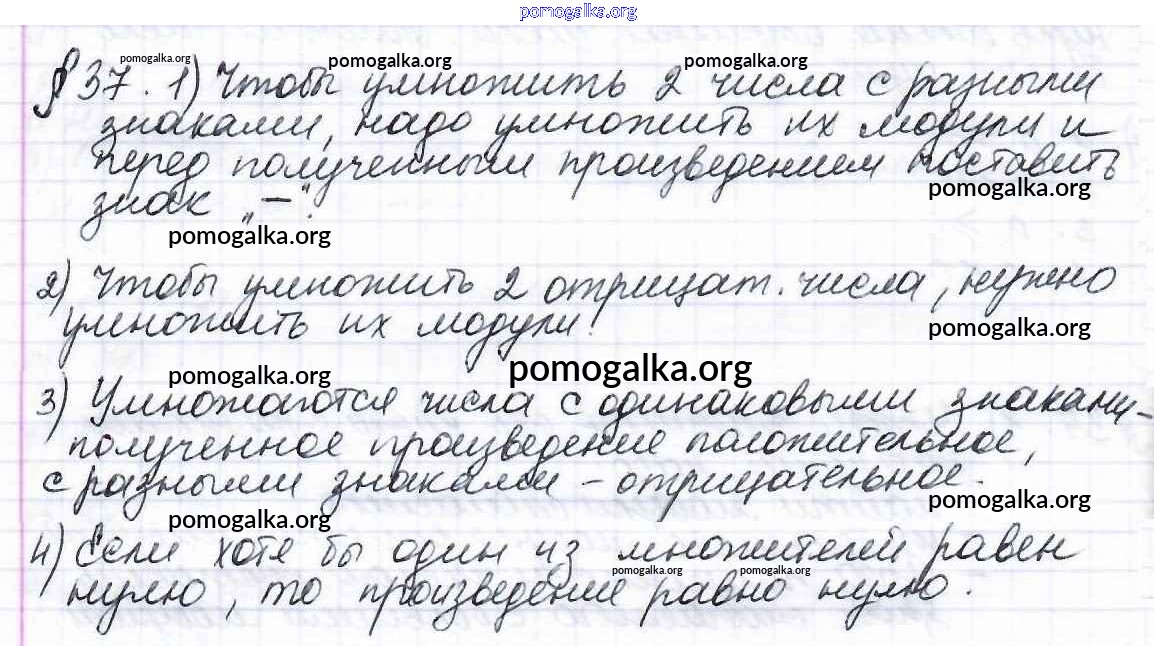 pomogalka.org
pomogalka.org pomogalka.org pomogalka.org
§ 37. 1) Чтобы умножить 2 числа с разными
знаками, надо умножить их модули и
перед полученным произведением поставить
pomogalka.org
знак „—“.
pomogalka.org
2) Чтобы умножить 2 отрицат. числа, нужно
умножить их модули.
pomogalka.org
pomogalka.org
pomogalka.org
3) Умножаются числа с одинаковыми знаками -
полученное произведение положительное,
с разными знаками - отрицательное.
pomogalka.org
pomogalka.org
4) Если хотя бы один из множителей равен
pomogalka.org pomogalka.org
нулю, то произведение равно нулю.